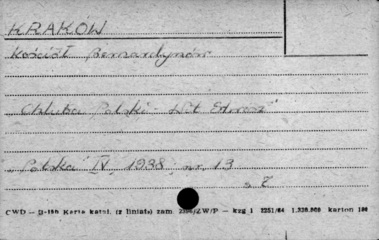 KRAKÓW
Kościół Bernardynów
Chluba Polski -
"Polska" IV, 1938, nr. 13
s. 7
CWD — D-100 Karta katal. (z liniat.) zam. /ZW/P — kzg 1 2251/64 1.320.000 karton 180